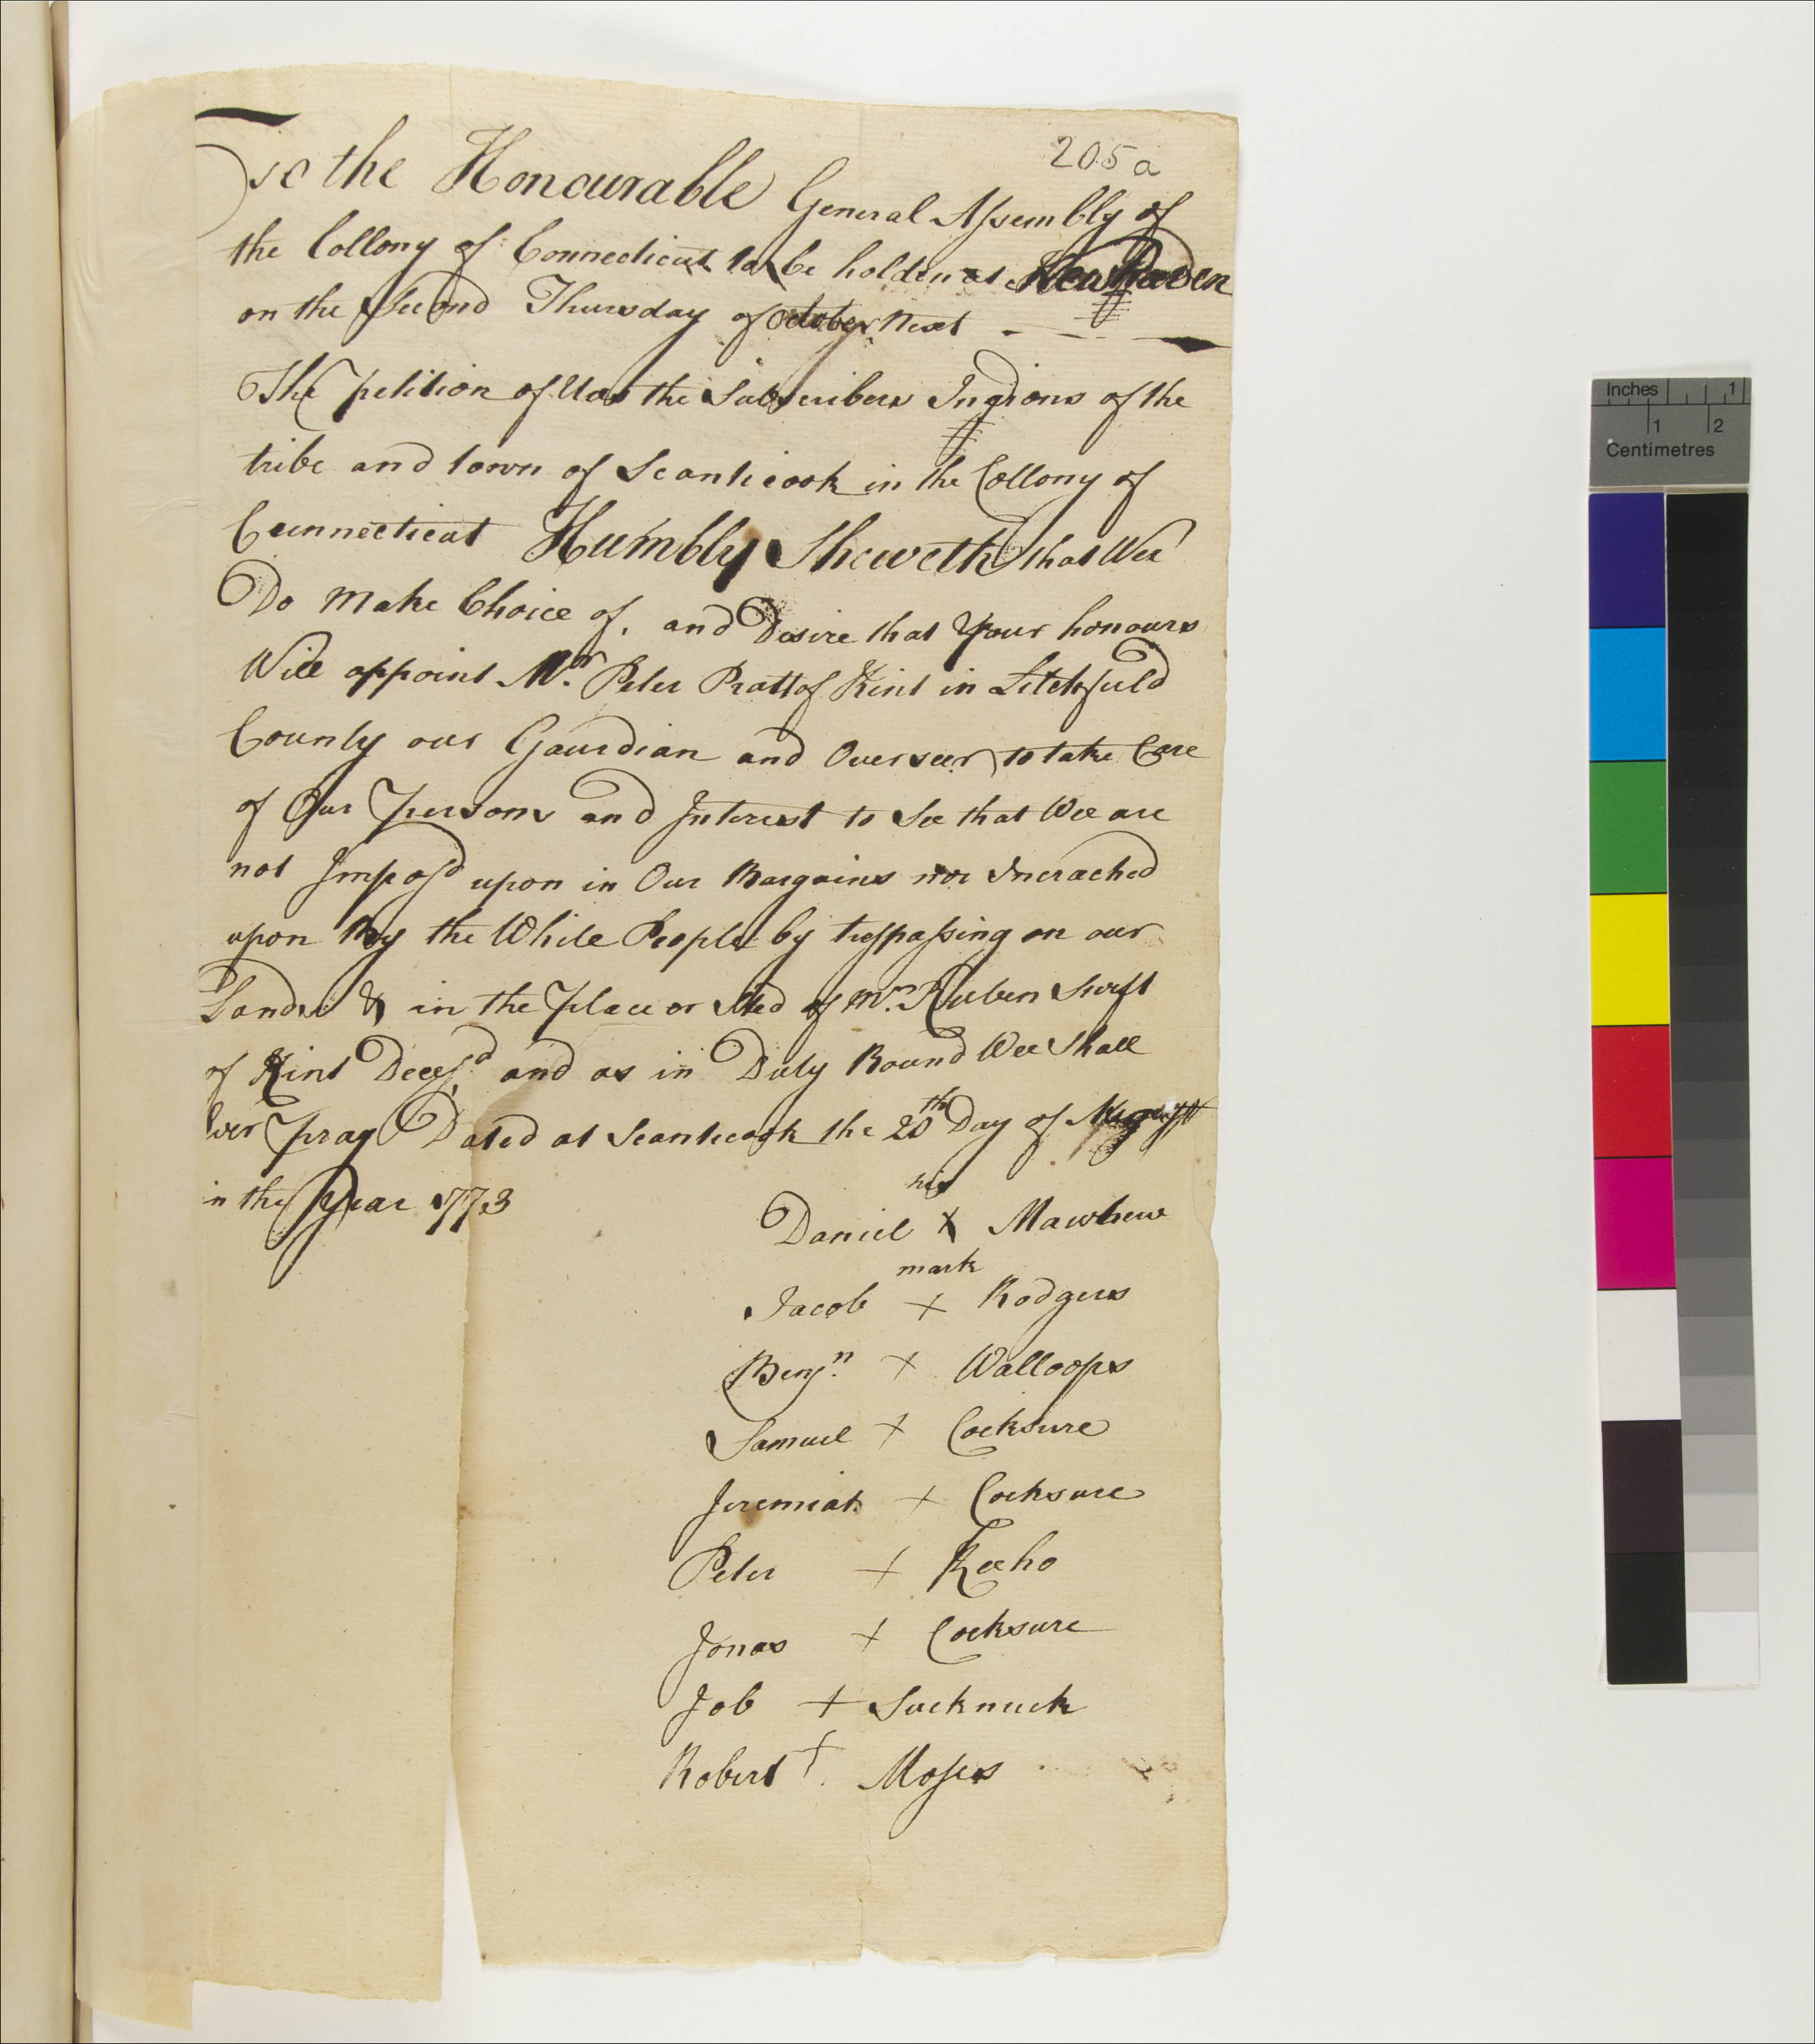 205a
To the Honourable General Assembly of
the Collony of Connecticut to be holden at New Haven
on the Second Thursday of October Next
The petition of Uss the Subscribers Ingions of the
tribe and town of Scanticook in the Collony of
Connecticut Humbly Sheweth that Wee
Do Make Choice of, and Desire that Your honours
Will appoint Mr. Peter Pratt of Kint in Litchfield
County our Gaurdian and Overseer to take Care
of Our persons and Interest to See that Wee are
not Imposd upon in Our Bargains nor Incrached
upon by the White People by trespassing on our
Lands & in the place or Sted of Mr. Ruben Swift
of Kint Decesd. and as in Duty Bound Wee Shall
Ever pray Dated at Scanticook the 20th Day of August
in the Year 1773
his
Daniel X Mawhew
mark
Jacob + Rodgers
Benjn. + Walloops
Samuel + Cocksure
Jeremiah + Cocksure
Peter + Keeho
Jonas + Cocksure
Job + Sucknuck
Robert + Moses
Inches 1
1 2
Centimetres